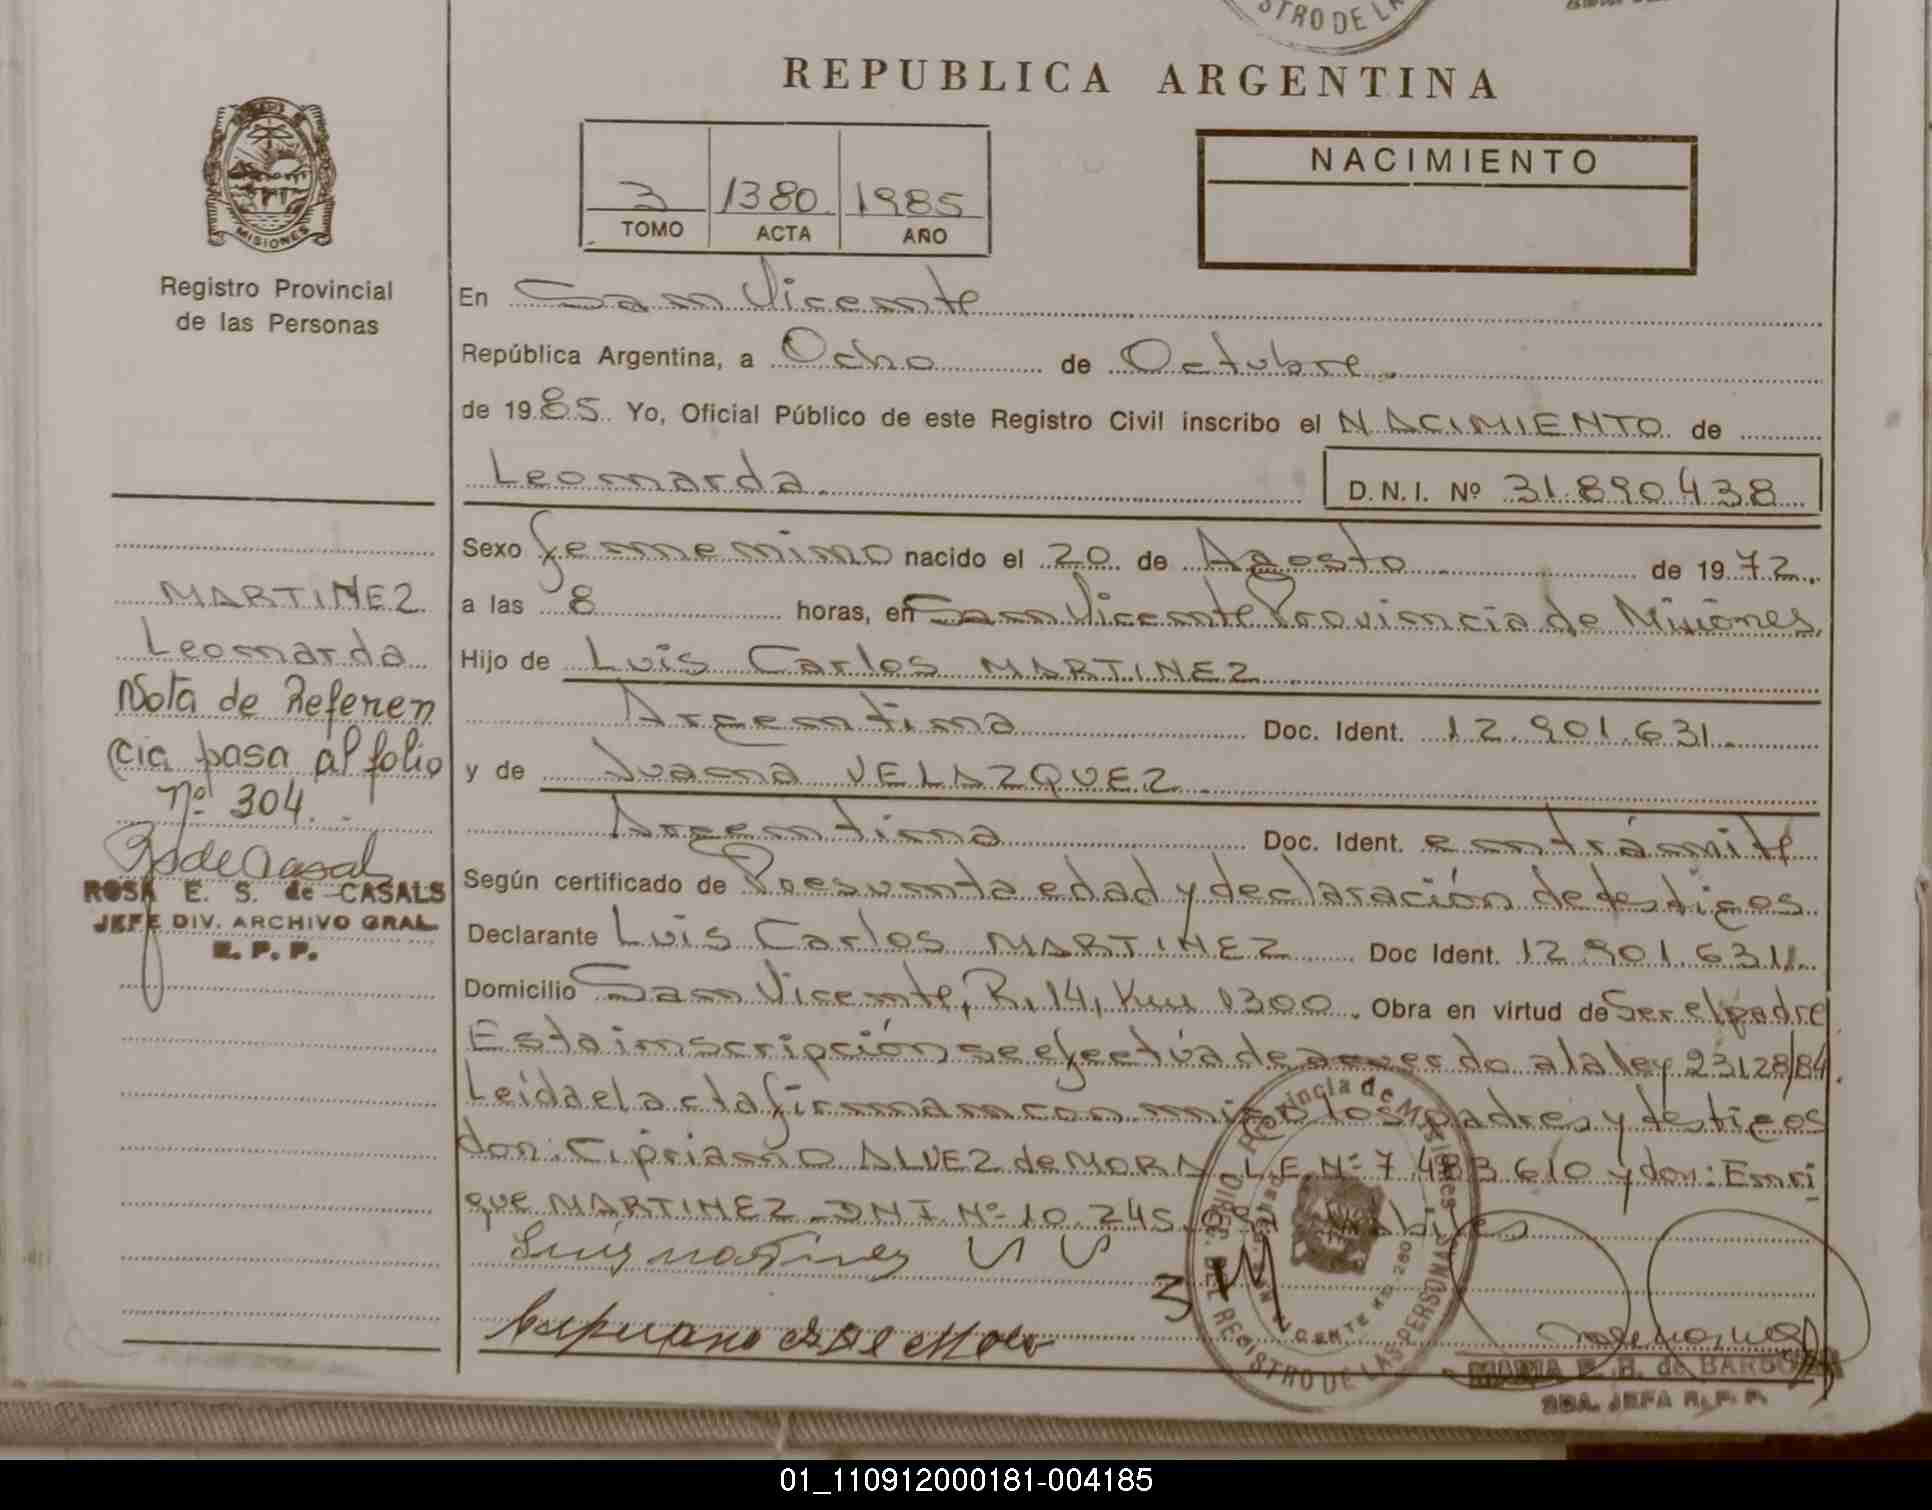 STRO DE LA
REPUBLICA ARGENTINA
NACIMIENTO
3 1380 1985
TOMO ACTA AÑO
MISIONES
Registro Provincial
de las Personas
En San Vicente
República Argentina, a Ocho de Octubre.
de 1985. Yo, Oficial Público de este Registro Civil inscribo el NACIMIENTO de
Leonarda. D.N.I. Nº 31.890.438
Sexo femenino nacido el 20 de Agosto de 1972.
a las 8 horas, en San Vicente Provincia de Misiones.
Hijo de Luis Carlos MARTINEZ
Argentina Doc. Ident. 12.901.631.
y de Juana VELAZQUEZ
Argentina Doc. Ident. en trámite
Según certificado de Presunta edad y declaración de testigos.
Declarante Luis Carlos MARTINEZ Doc Ident. 12.901.631.
Domicilio San Vicente, R. 14, Km 1300. Obra en virtud de Ser el padre
Esta inscripción se efectúa de acuerdo a la ley 23128/84.
Leída el acta firman con migo los padres y testigos
don: Cipriano ALVEZ de MORA L.E. Nº 7.483.610 y don: Enri
que MARTINEZ DNI Nº 10.245.
MARTINEZ
Leonarda
Nota de Referen
cia pasa al folio
Nº 304.
R S de Casals
ROSA E. S. de CASALS
JEFE DIV. ARCHIVO GRAL.
R. P. P.
Luis Martinez
Provincia de Misiones
DEL REGISTRO DE LAS PERSONAS
MARIA E. H. de BARBOZA
SBA. JEFA R. P. P.
01_110912000181-004185